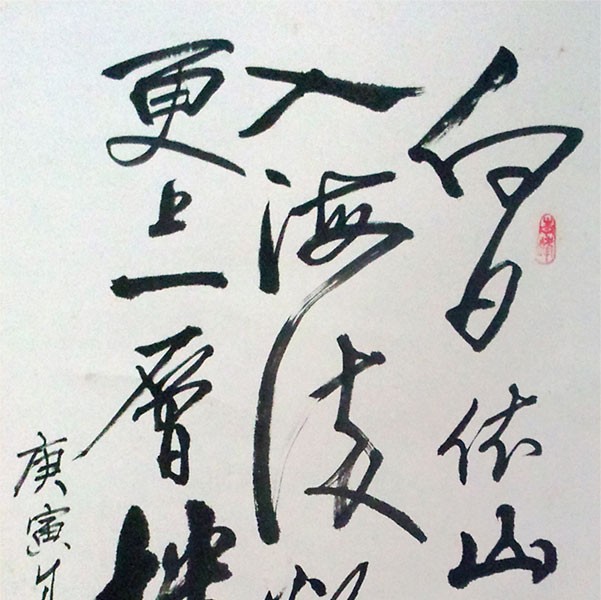 白日依山
入海流
更上一層楼
庚寅年